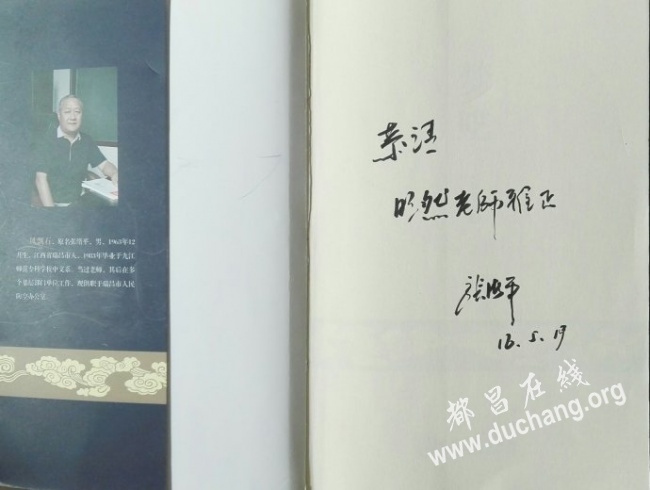 原名张浩平，男，1963年12
月生，江西省瑞昌市人，1983年毕业于九江
师范专科学校中文系，当过老师，其后在多
个基层部门单位工作，现供职于瑞昌市人民
政府办公室。
敬请
明然老师雅正
张浩平
16.5.19
都昌在線
www.duchang.org